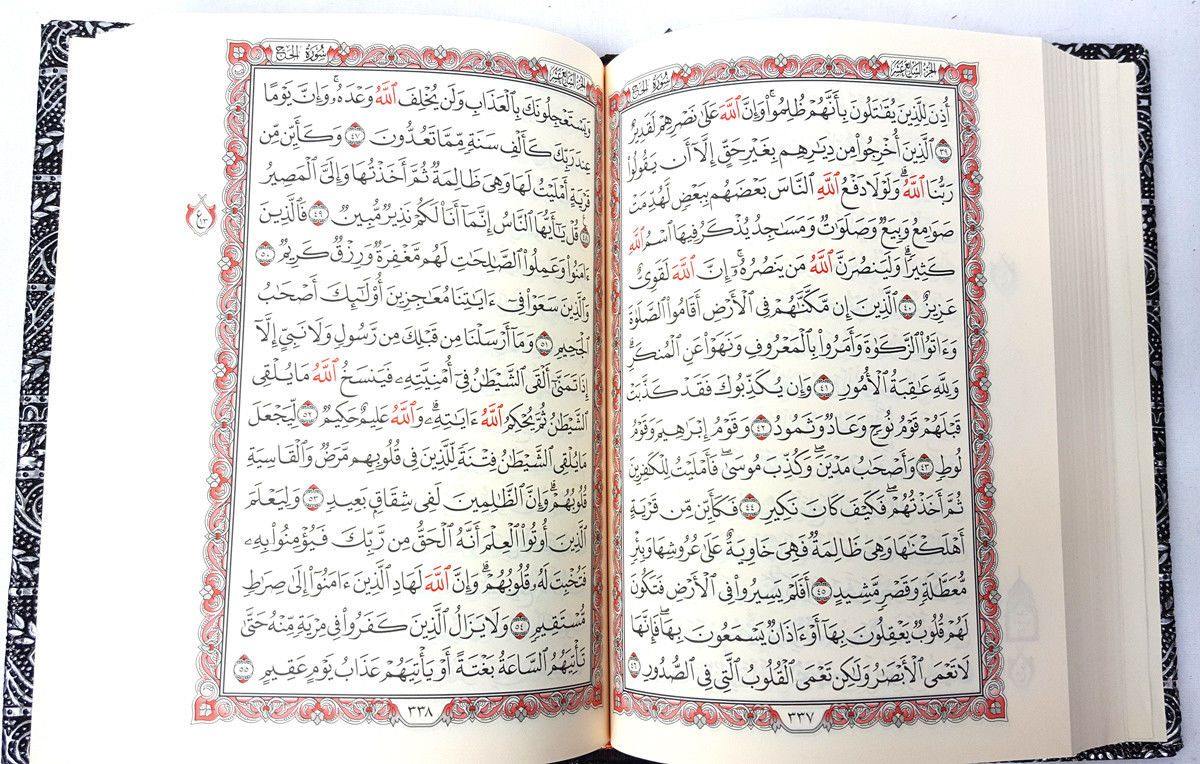 سُورَةُ الحَجّ
الجزءُ السَّابِعَ عَشَرَ
أُذِنَ لِلَّذِينَ يُقَٰتَلُونَ بِأَنَّهُمْ ظُلِمُوا۟ ۚ وَإِنَّ ٱللَّهَ عَلَىٰ نَصْرِهِمْ لَقَدِيرٌ
٣٩ ٱلَّذِينَ أُخْرِجُوا۟ مِن دِيَٰرِهِم بِغَيْرِ حَقٍّ إِلَّآ أَن يَقُولُوا۟
رَبُّنَا ٱللَّهُ ۗ وَلَوْلَا دَفْعُ ٱللَّهِ ٱلنَّاسَ بَعْضَهُم بِبَعْضٍ لَّهُدِّمَتْ
صَوَٰمِعُ وَبِيَعٌ وَصَلَوَٰتٌ وَمَسَٰجِدُ يُذْكَرُ فِيهَا ٱسْمُ ٱللَّهِ
كَثِيرًا ۗ وَلَيَنصُرَنَّ ٱللَّهُ مَن يَنصُرُهُۥٓ ۗ إِنَّ ٱللَّهَ لَقَوِىٌّ
عَزِيزٌ ٤٠ ٱلَّذِينَ إِن مَّكَّنَّٰهُمْ فِى ٱلْأَرْضِ أَقَامُوا۟ ٱلصَّلَوٰةَ
وَءَاتَوُا۟ ٱلزَّكَوٰةَ وَأَمَرُوا۟ بِٱلْمَعْرُوفِ وَنَهَوْا۟ عَنِ ٱلْمُنكَرِ ۗ
وَلِلَّهِ عَٰقِبَةُ ٱلْأُمُورِ ٤١ وَإِن يُكَذِّبُوكَ فَقَدْ كَذَّبَتْ
قَبْلَهُمْ قَوْمُ نُوحٍ وَعَادٌ وَثَمُودُ ٤٢ وَقَوْمُ إِبْرَٰهِيمَ وَقَوْمُ
لُوطٍ ٤٣ وَأَصْحَٰبُ مَدْيَنَ ۖ وَكُذِّبَ مُوسَىٰ فَأَمْلَيْتُ لِلْكَٰفِرِينَ
ثُمَّ أَخَذْتُهُمْ ۖ فَكَيْفَ كَانَ نَكِيرِ ٤٤ فَكَأَيِّن مِّن قَرْيَةٍ
أَهْلَكْنَٰهَا وَهِىَ ظَالِمَةٌ فَهِىَ خَاوِيَةٌ عَلَىٰ عُرُوشِهَا وَبِئْرٍ
مُّعَطَّلَةٍ وَقَصْرٍ مَّشِيدٍ ٤٥ أَفَلَمْ يَسِيرُوا۟ فِى ٱلْأَرْضِ فَتَكُونَ
لَهُمْ قُلُوبٌ يَعْقِلُونَ بِهَآ أَوْ ءَاذَانٌ يَسْمَعُونَ بِهَا ۖ فَإِنَّهَا
لَا تَعْمَى ٱلْأَبْصَٰرُ وَلَٰكِن تَعْمَى ٱلْقُلُوبُ ٱلَّتِى فِى ٱلصُّدُورِ ٤٦
٣٣٧
سُورَةُ الحَجّ
الجزءُ السَّابِعَ عَشَرَ
وَيَسْتَعْجِلُونَكَ بِٱلْعَذَابِ وَلَن يُخْلِفَ ٱللَّهُ وَعْدَهُۥ ۚ وَإِنَّ يَوْمًا
عِندَ رَبِّكَ كَأَلْفِ سَنَةٍ مِّمَّا تَعُدُّونَ ٤٧ وَكَأَيِّن مِّن
قَرْيَةٍ أَمْلَيْتُ لَهَا وَهِىَ ظَالِمَةٌ ثُمَّ أَخَذْتُهَا وَإِلَىَّ ٱلْمَصِيرُ
٤٨ قُلْ يَٰٓأَيُّهَا ٱلنَّاسُ إِنَّمَآ أَنَا۠ لَكُمْ نَذِيرٌ مُّبِينٌ ٤٩ فَٱلَّذِينَ
ءَامَنُوا۟ وَعَمِلُوا۟ ٱلصَّٰلِحَٰتِ لَهُم مَّغْفِرَةٌ وَرِزْقٌ كَرِيمٌ ٥٠
وَٱلَّذِينَ سَعَوْا۟ فِىٓ ءَايَٰتِنَا مُعَٰجِزِينَ أُو۟لَٰٓئِكَ أَصْحَٰبُ
ٱلْجَحِيمِ ٥١ وَمَآ أَرْسَلْنَا مِن قَبْلِكَ مِن رَّسُولٍ وَلَا نَبِىٍّ إِلَّآ
إِذَا تَمَنَّىٰٓ أَلْقَى ٱلشَّيْطَٰنُ فِىٓ أُمْنِيَّتِهِۦ فَيَنسَخُ ٱللَّهُ مَا يُلْقِى
ٱلشَّيْطَٰنُ ثُمَّ يُحْكِمُ ٱللَّهُ ءَايَٰتِهِۦ ۗ وَٱللَّهُ عَلِيمٌ حَكِيمٌ ٥٢ لِّيَجْعَلَ
مَا يُلْقِى ٱلشَّيْطَٰنُ فِتْنَةً لِّلَّذِينَ فِى قُلُوبِهِم مَّرَضٌ وَٱلْقَاسِيَةِ
قُلُوبُهُمْ ۗ وَإِنَّ ٱلظَّٰلِمِينَ لَفِى شِقَاقٍۭ بَعِيدٍ ٥٣ وَلِيَعْلَمَ
ٱلَّذِينَ أُوتُوا۟ ٱلْعِلْمَ أَنَّهُ ٱلْحَقُّ مِن رَّبِّكَ فَيُؤْمِنُوا۟ بِهِۦ
فَتُخْبِتَ لَهُۥ قُلُوبُهُمْ ۗ وَإِنَّ ٱللَّهَ لَهَادِ ٱلَّذِينَ ءَامَنُوٓا۟ إِلَىٰ صِرَٰطٍ
مُّسْتَقِيمٍ ٥٤ وَلَا يَزَالُ ٱلَّذِينَ كَفَرُوا۟ فِى مِرْيَةٍ مِّنْهُ حَتَّىٰ
تَأْتِيَهُمُ ٱلسَّاعَةُ بَغْتَةً أَوْ يَأْتِيَهُمْ عَذَابُ يَوْمٍ عَقِيمٍ ٥٥
٣٣٨